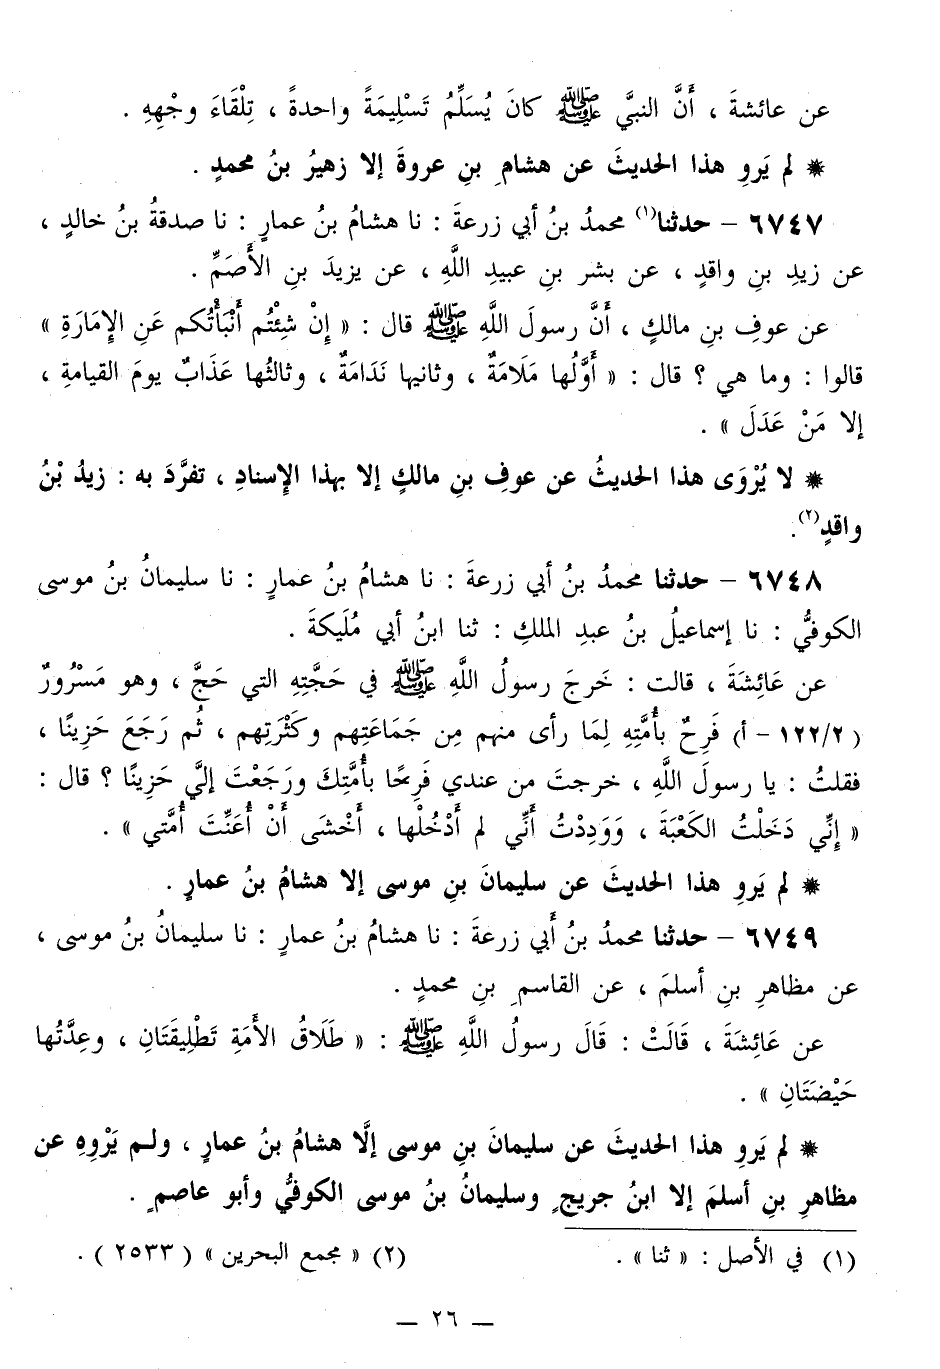 عن عائشةَ ، أَنَّ النبيَّ ﷺ كانَ يُسَلِّمُ تَسْلِيمَةً واحدةً ، تِلْقَاءَ وجْهِهِ .
* لم يَروِ هذا الحديثَ عن هشامِ بنِ عروةَ إلا زهيرُ بنُ محمدٍ .
٦٧٤٧ – حدثنا(١) محمدُ بنُ أبي زرعةَ : نا هشامُ بنُ عمارٍ : نا صدقةُ بنُ خالدٍ ،
عن زيدِ بنِ واقدٍ ، عن بشر بنِ عبيدِ اللَّهِ ، عن يزيدَ بنِ الأَصَمِّ .
عن عوفِ بنِ مالكٍ ، أَنَّ رسولَ اللَّهِ ﷺ قال : « إِنْ شئِْتُم أَنْبَأْتُكم عَنِ الإِمَارَةِ »
قالوا : وما هي ؟ قال : « أَوَّلُها مَلَامَةٌ ، وثانيها نَدَامَةٌ ، وثالثُها عَذَابٌ يومَ القيامةِ ،
إلا مَنْ عَدَلَ » .
* لا يُرْوَى هذا الحديثُ عن عوفِ بنِ مالكٍ إلا بهذا الإِسنادِ ، تفرَّدَ به : زيدُ بْنُ
واقدٍ(٢).
٦٧٤٨ – حدثنا محمدُ بنُ أبي زرعةَ : نا هشامُ بنُ عمارٍ : نا سليمانُ بنُ موسى
الكوفيُّ : نا إسماعيلُ بنُ عبدِ الملكِ : ثنا ابنُ أبي مُلَيكةَ .
عن عَائِشَةَ ، قالت : خَرجَ رسولُ اللَّهِ ﷺ في حَجَّتِهِ التي حَجَّ ، وهو مَسْرُورٌ
(١٢٢/٢ – أ) فَرِحٌ بأُمَّتِهِ لِمَا رأى منهم مِن جَمَاعَتِهم وكَثْرَتِهم ، ثُم رَجَعَ حَزِينًا ،
فقلتُ : يا رسولَ اللَّهِ ، خرجتَ من عندي فَرِحًا بأُمَّتِكَ ورَجَعْتَ إليَّ حَزِينًا ؟ قال :
« إِنِّي دَخَلْتُ الكَعْبَةَ ، وَوَدِدْتُ أَنِّي لم أَدْخُلْها ، أَخْشَى أَنْ أُعَنِّتَ أُمَّتي » .
* لم يَروِ هذا الحديثَ عن سليمانَ بنِ موسى إلا هشامُ بنُ عمارٍ .
٦٧٤٩ – حدثنا محمدُ بنُ أَبي زرعةَ : نا هشامُ بنُ عمارٍ : نا سليمانُ بنُ موسى ،
عن مظاهرِ بنِ أسلمَ ، عن القاسمِ بنِ محمدٍ .
عن عَائِشَةَ ، قَالَتْ : قَالَ رسولُ اللَّهِ ﷺ : « طَلَاقُ الأَمَةِ تَطْلِيقَتَانِ ، وعِدَّتُها
حَيْضَتَانِ » .
* لم يَروِ هذا الحديثَ عن سليمانَ بنِ موسى إلَّا هشامُ بنُ عمارٍ ، ولم يَرْوِهِ عن
مظاهرِ بنِ أسلمَ إلا ابنُ جريجٍ وسليمانُ بنُ موسى الكوفيُّ وأبو عاصمٍ .
(١) في الأصل : « ثنا » .
(٢) « مجمع البحرين » ( ٢٥٣٣ ) .
— ٢٦ —